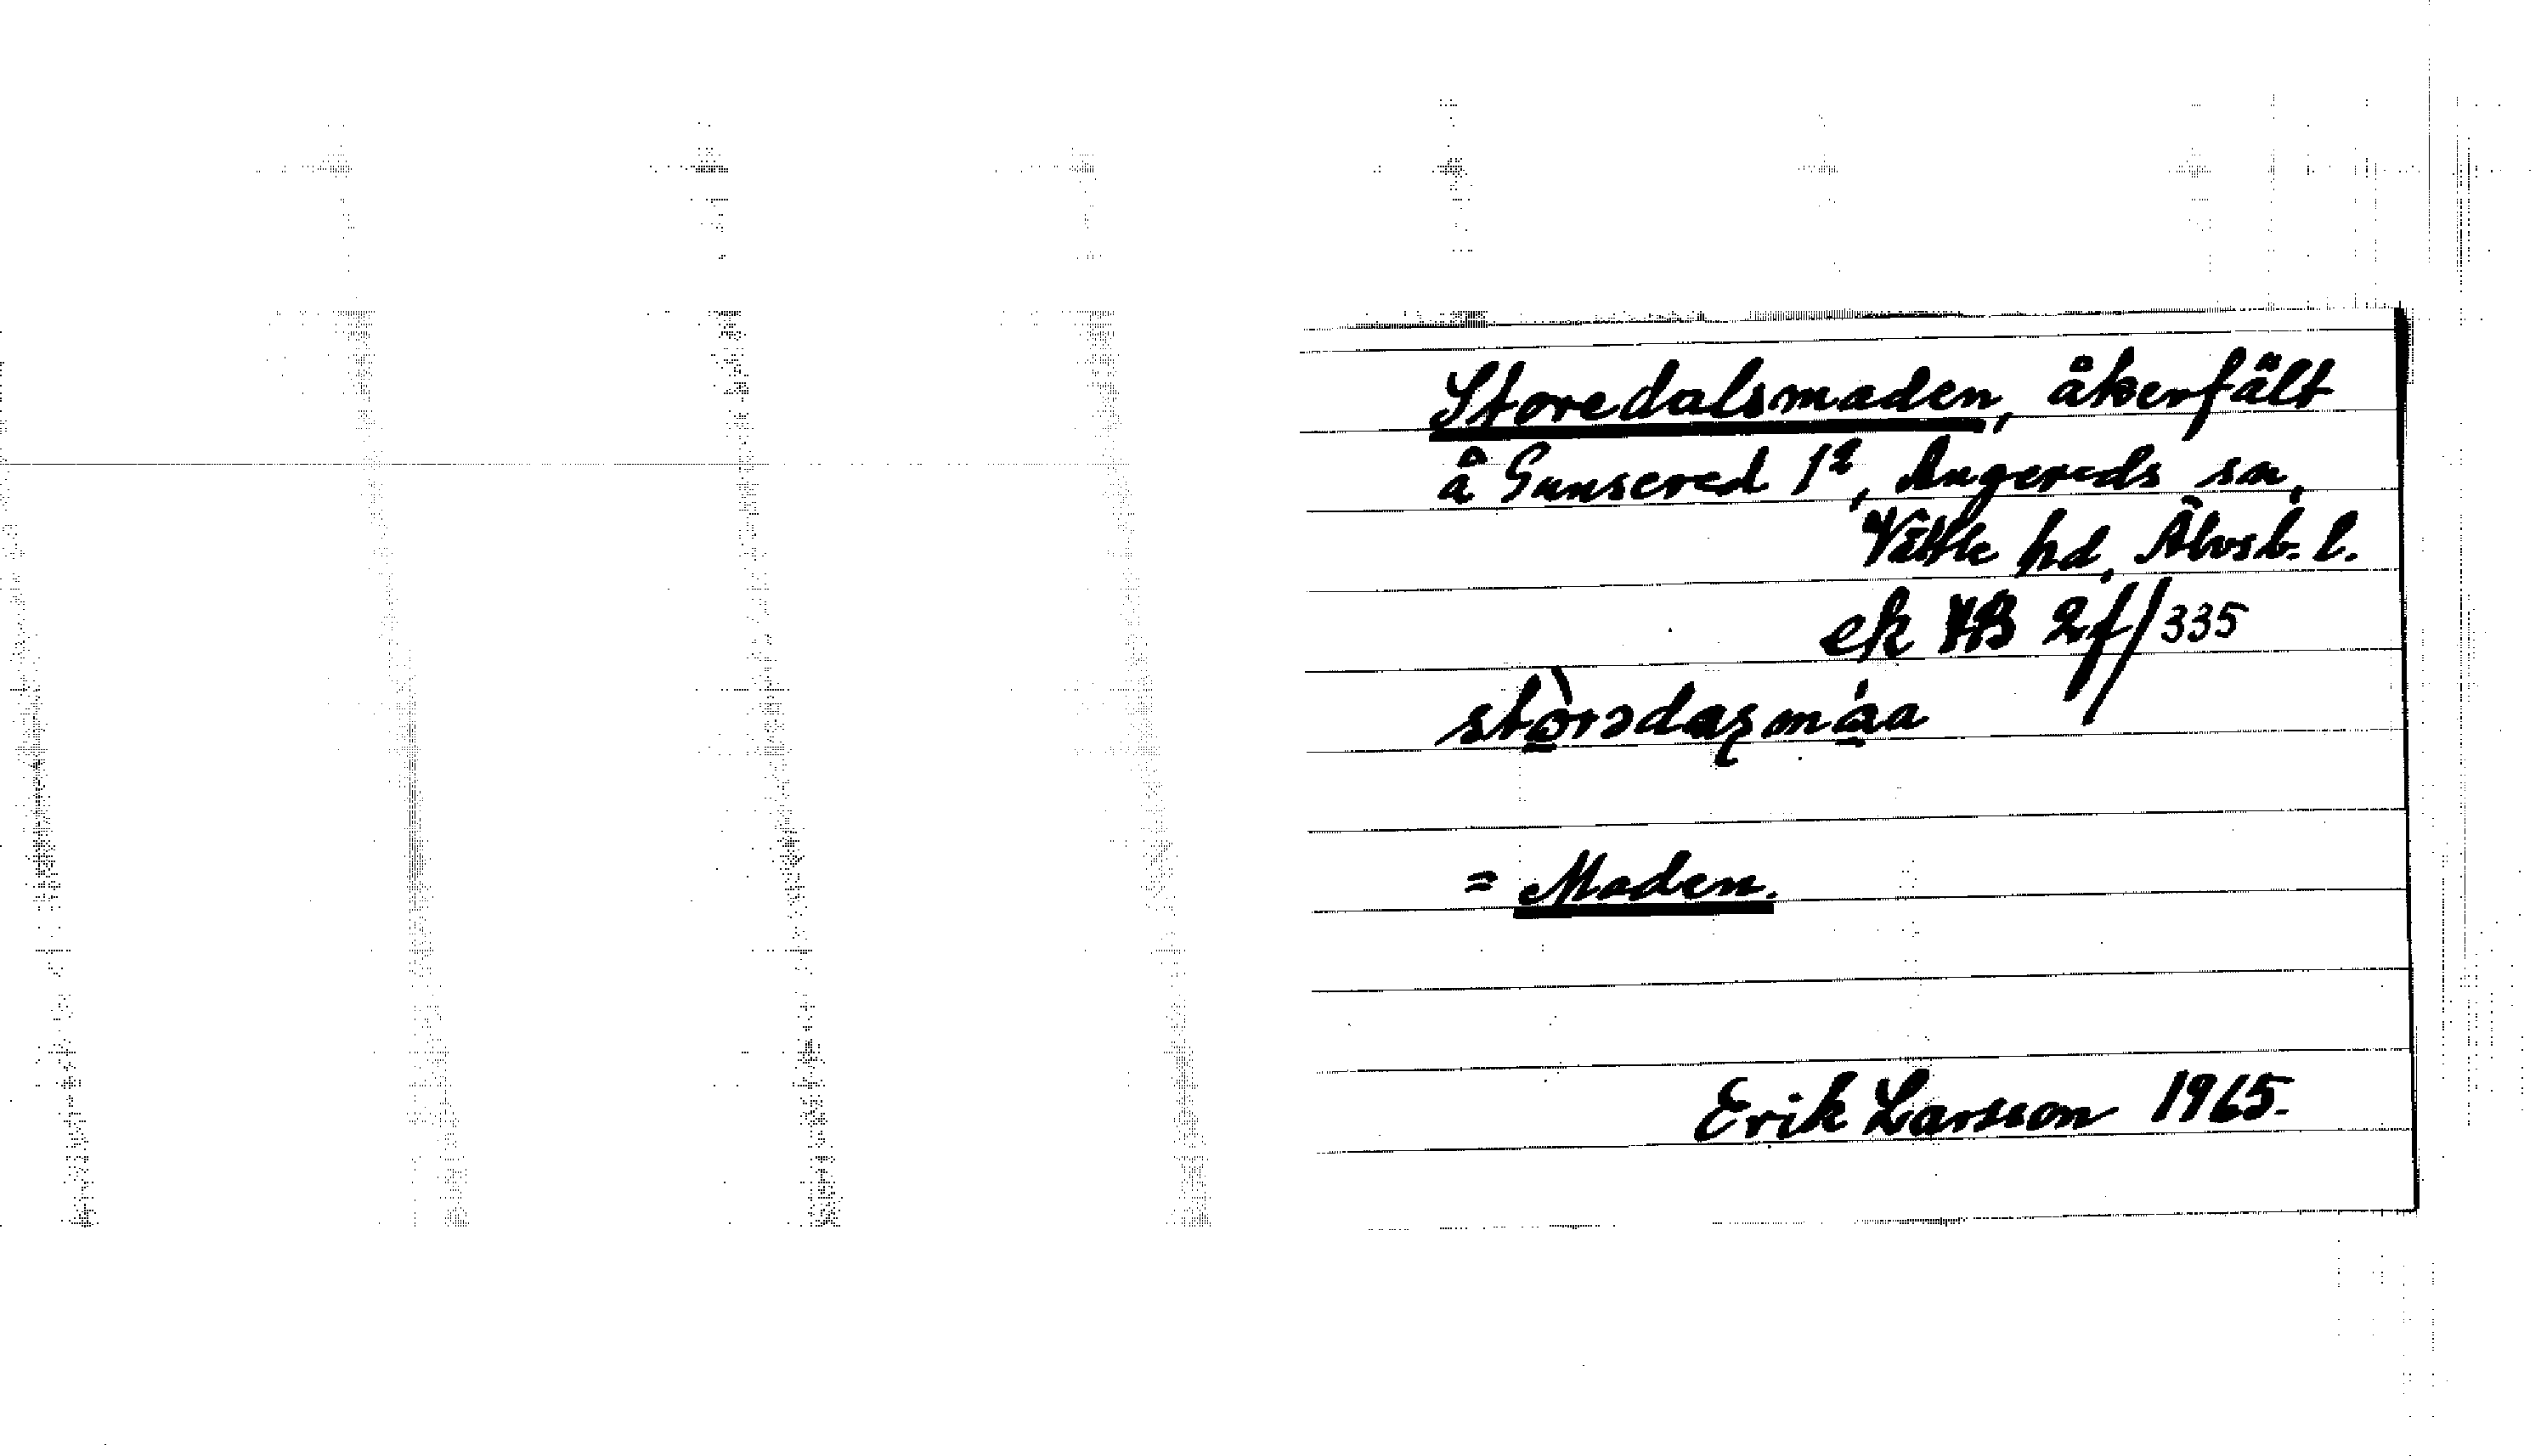 Storedalsmaden, åkerfält
å Gunsered 1², Angereds sn,
Vättle hd, Älvsb. l.
ek 7B 2f/335
stòrədaʂmáa
= Maden.
Erik Larsson 1965.